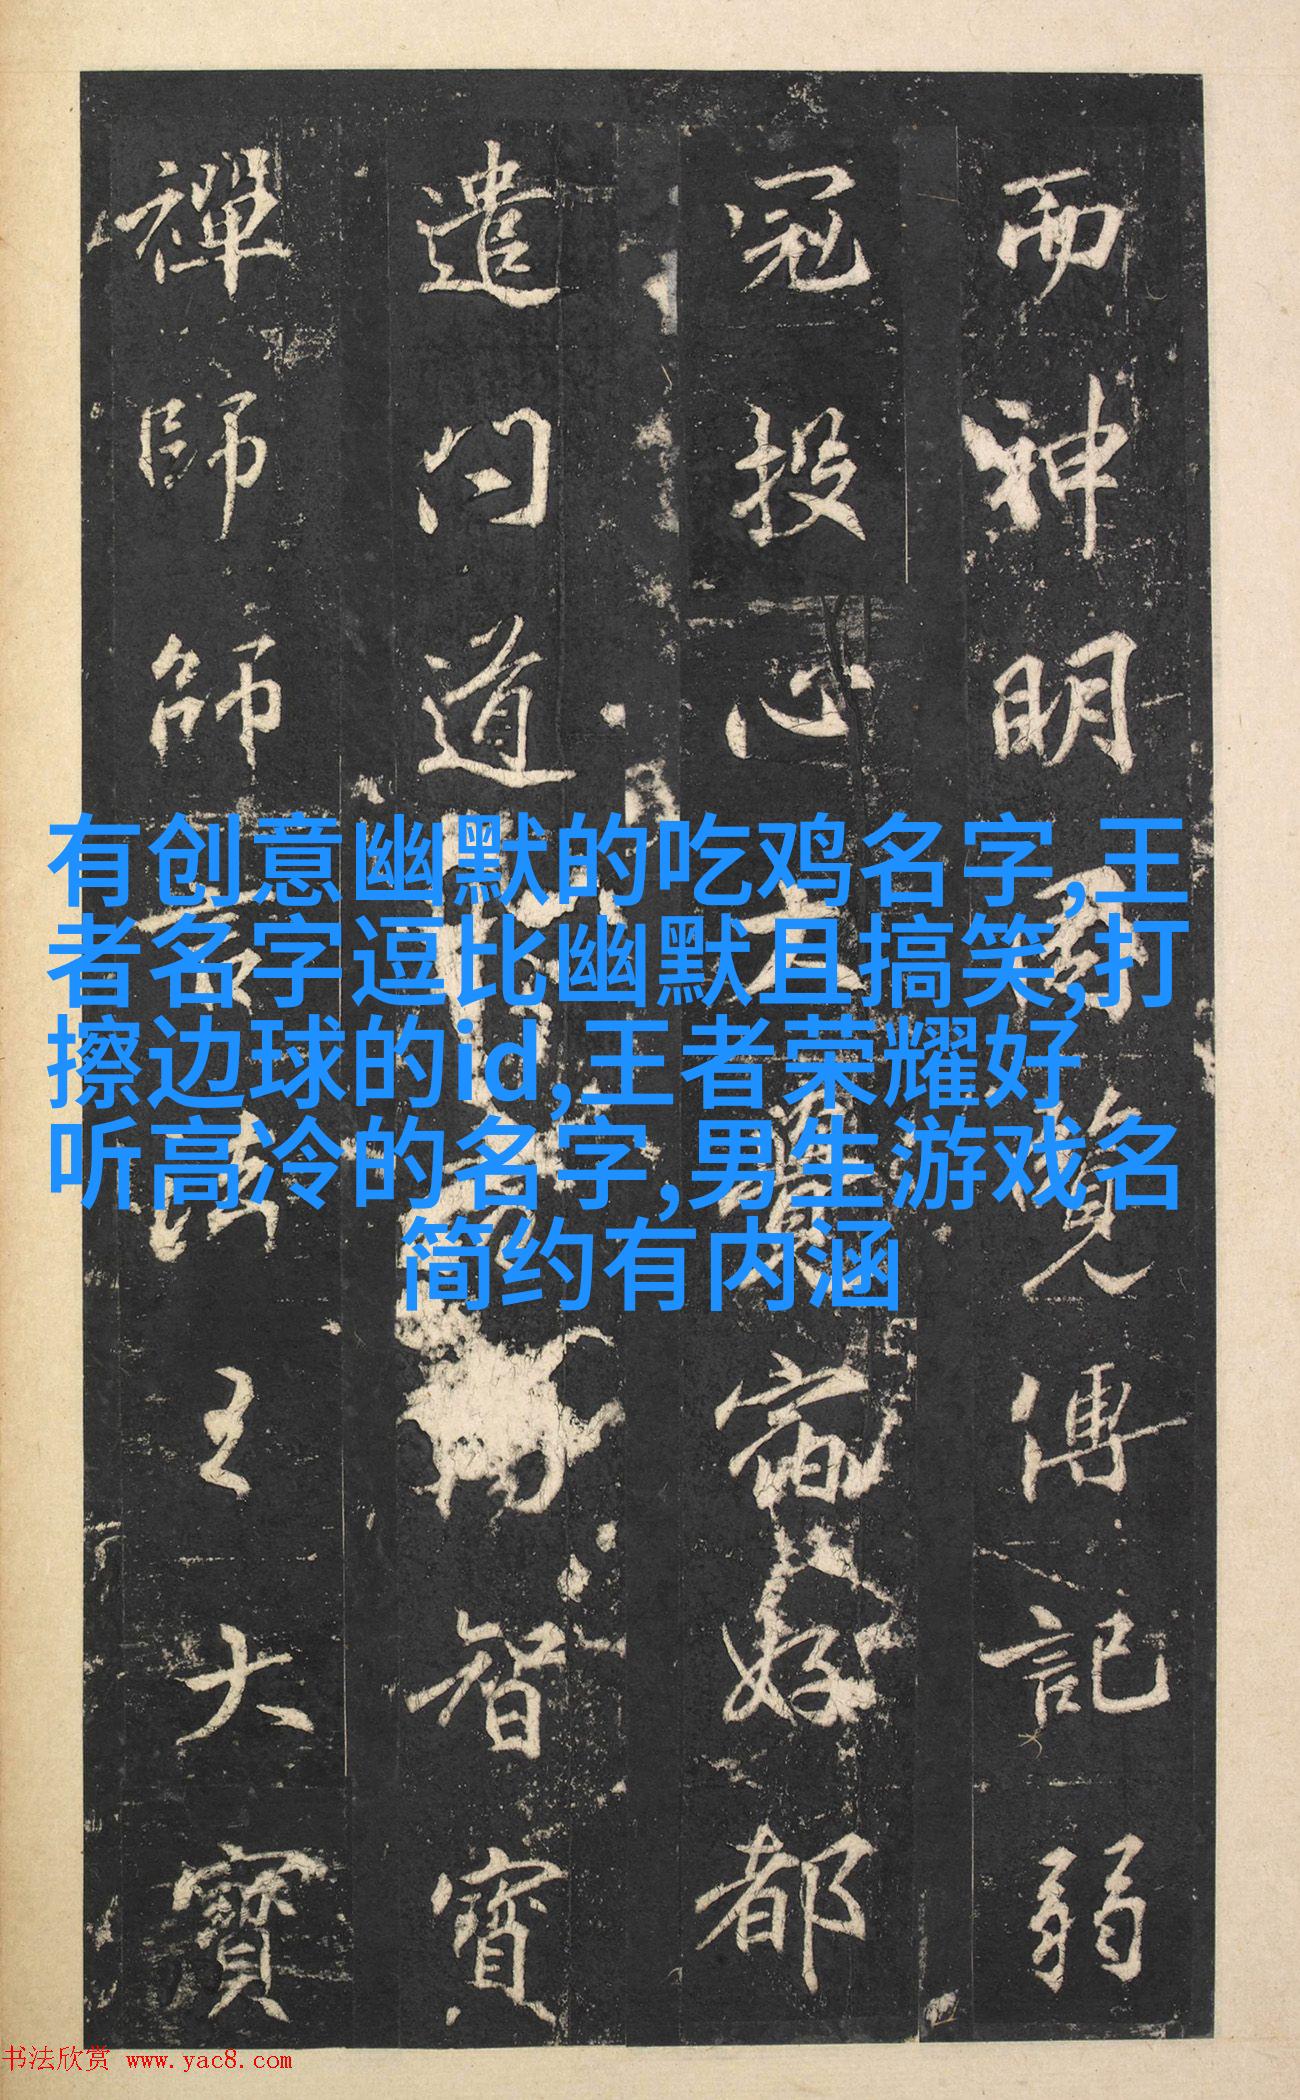 而神明周覽傳記弱
冠投心大好都
遣問道智寶
禪師師言法王大寶
有创意幽默的吃鸡名字,王
者名字逗比幽默且搞笑,打
擦边球的id,王者荣耀好
听高冷的名字,男生游戏名
简约有内涵
书法欣赏 www.yac8.com